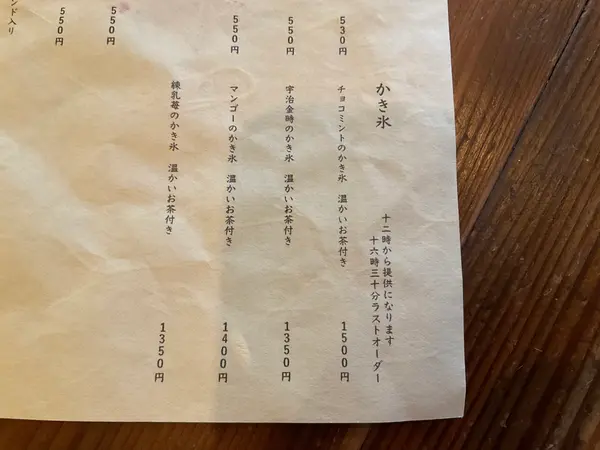 530円
550円
550円
550円
550円
ンド入り
かき氷
十二時から提供になります
十六時三十分ラストオーダー
チョコミントのかき氷　温かいお茶付き
1500円
宇治金時のかき氷　温かいお茶付き
1350円
マンゴーのかき氷　温かいお茶付き
1400円
練乳苺のかき氷　温かいお茶付き
1350円